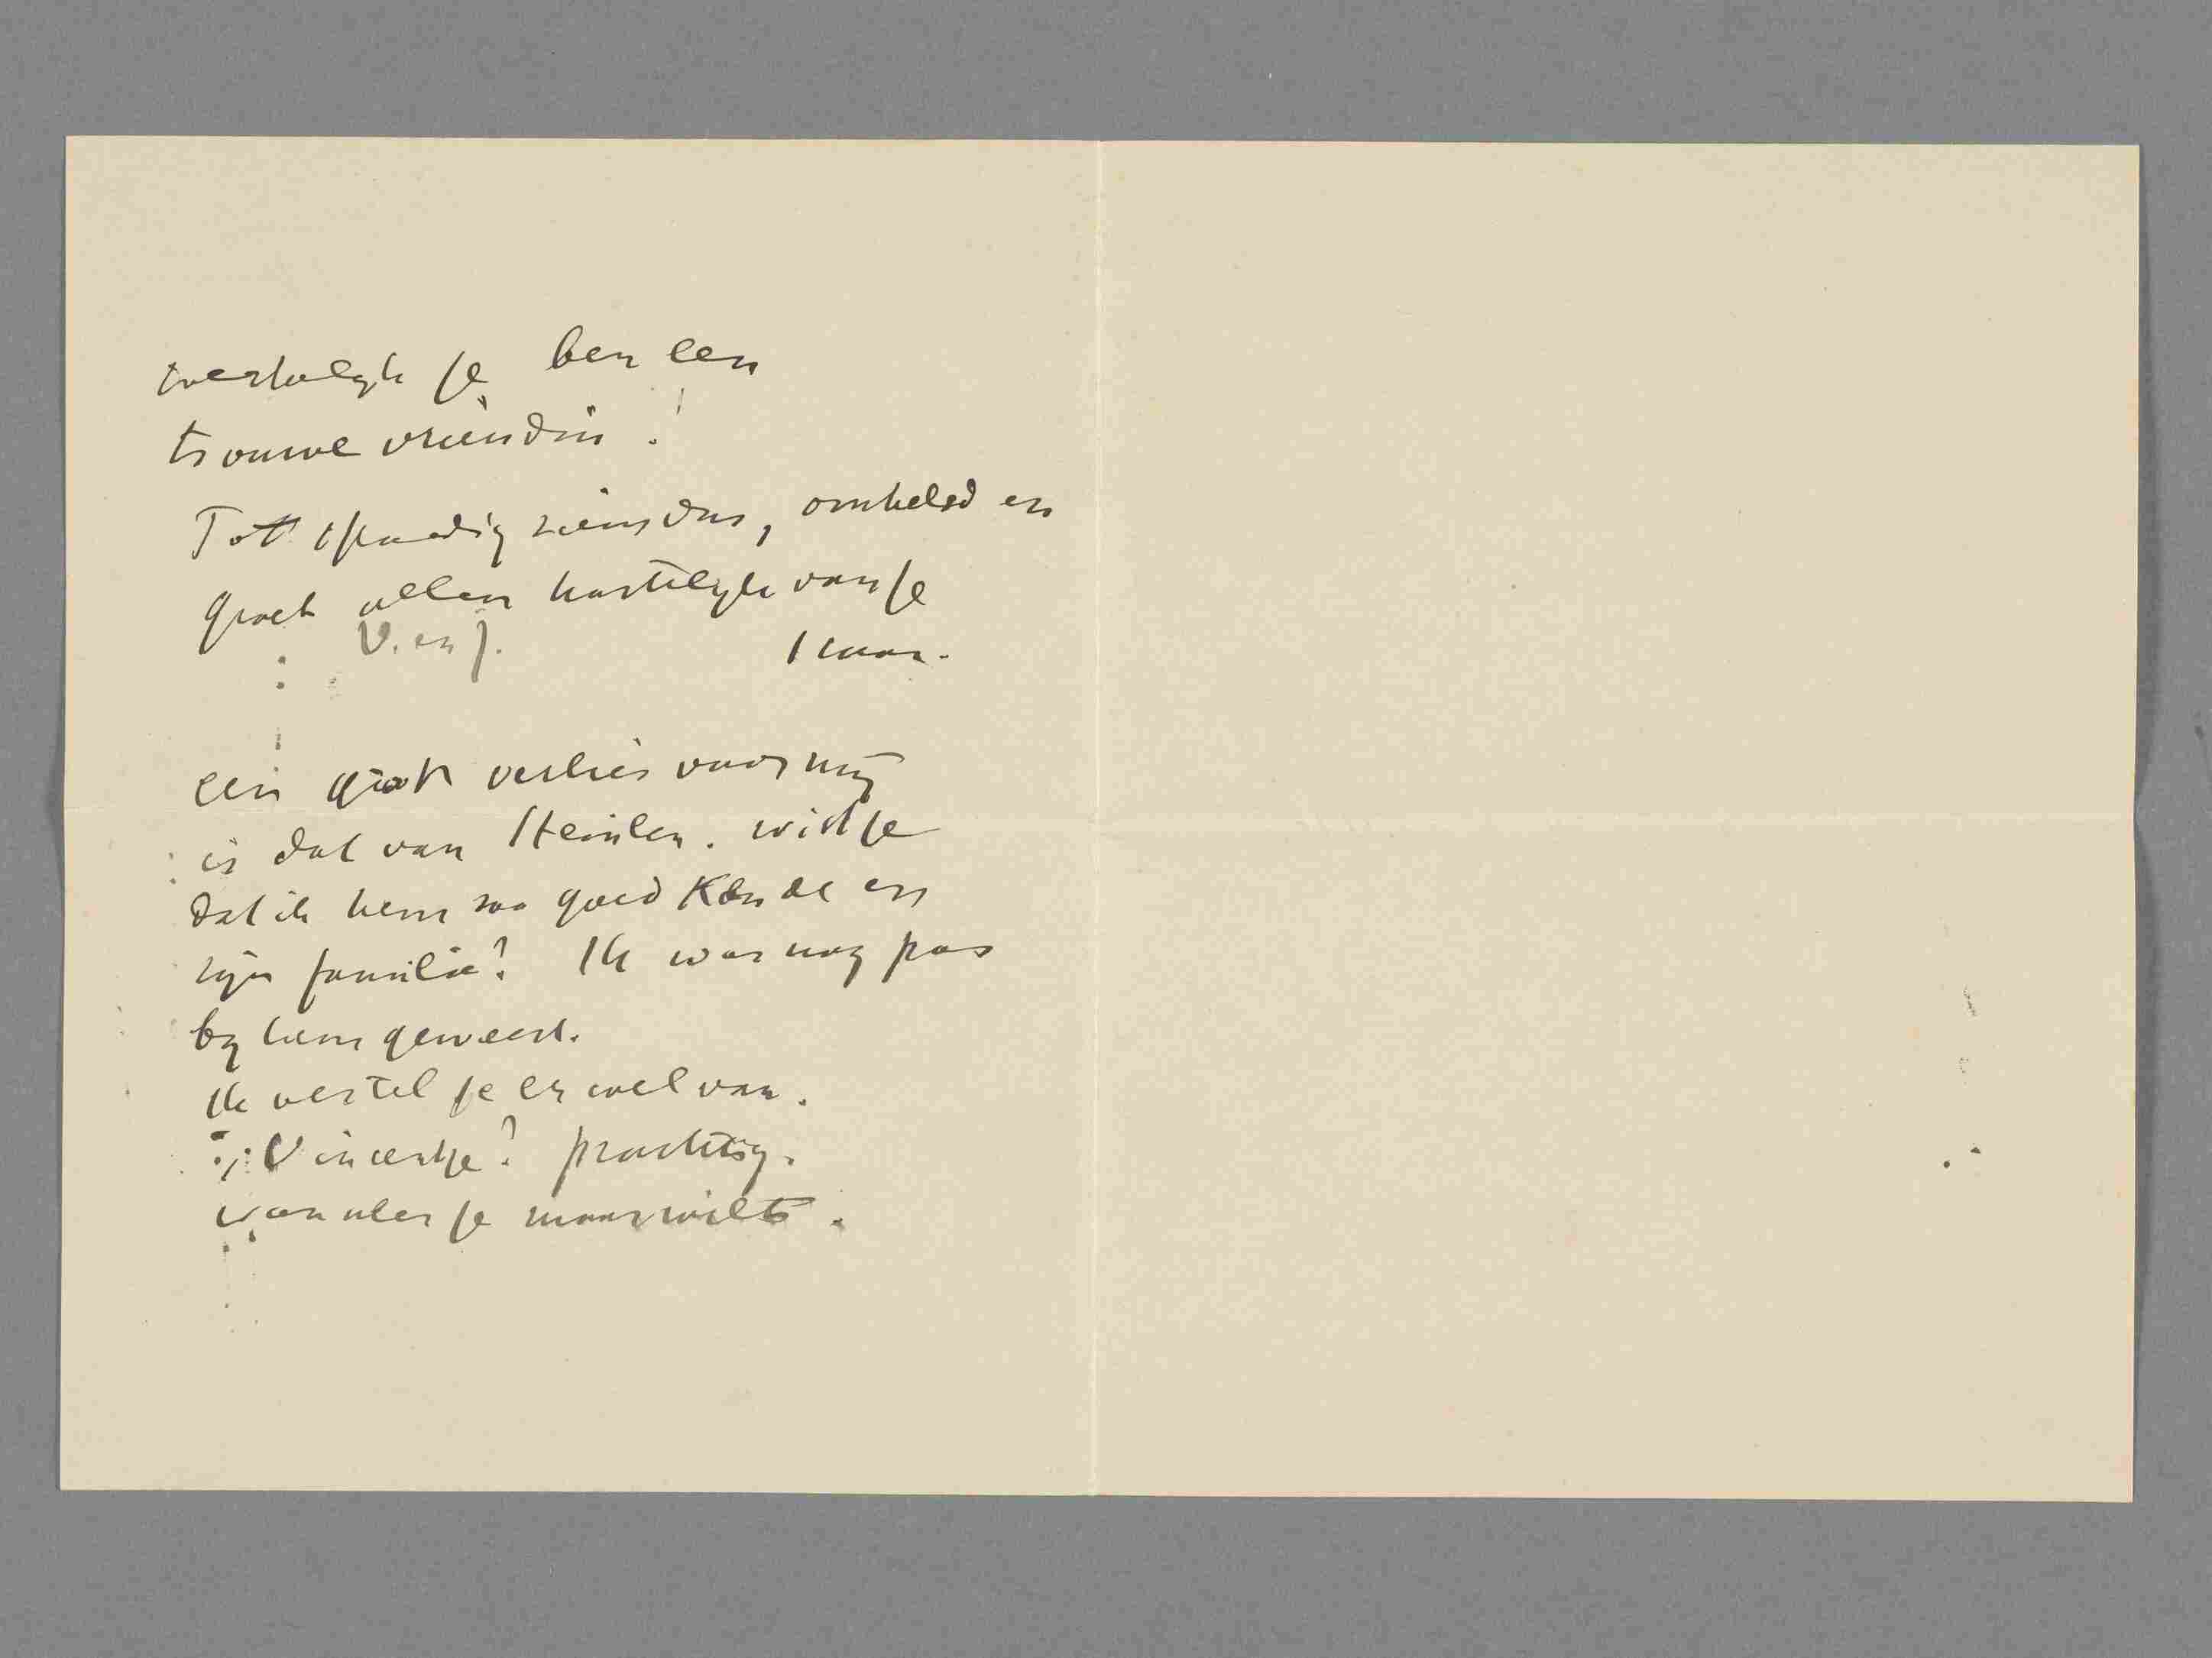 werkelyk je ben een
trouwe vriendin!
Tot spoedig ziens dus, omhelsd en
groet allen hartelyk van je
V. en J.
Isaac.
een groot verlies voor mij
is dat van Steinlen. wist je
dat ik hem zoo goed kende en
zijn familie? Ik was nog pas
by hem geweest.
Ik vertel je er wel van.
Vincentje? prachtig.
wanneer je maar wilt.